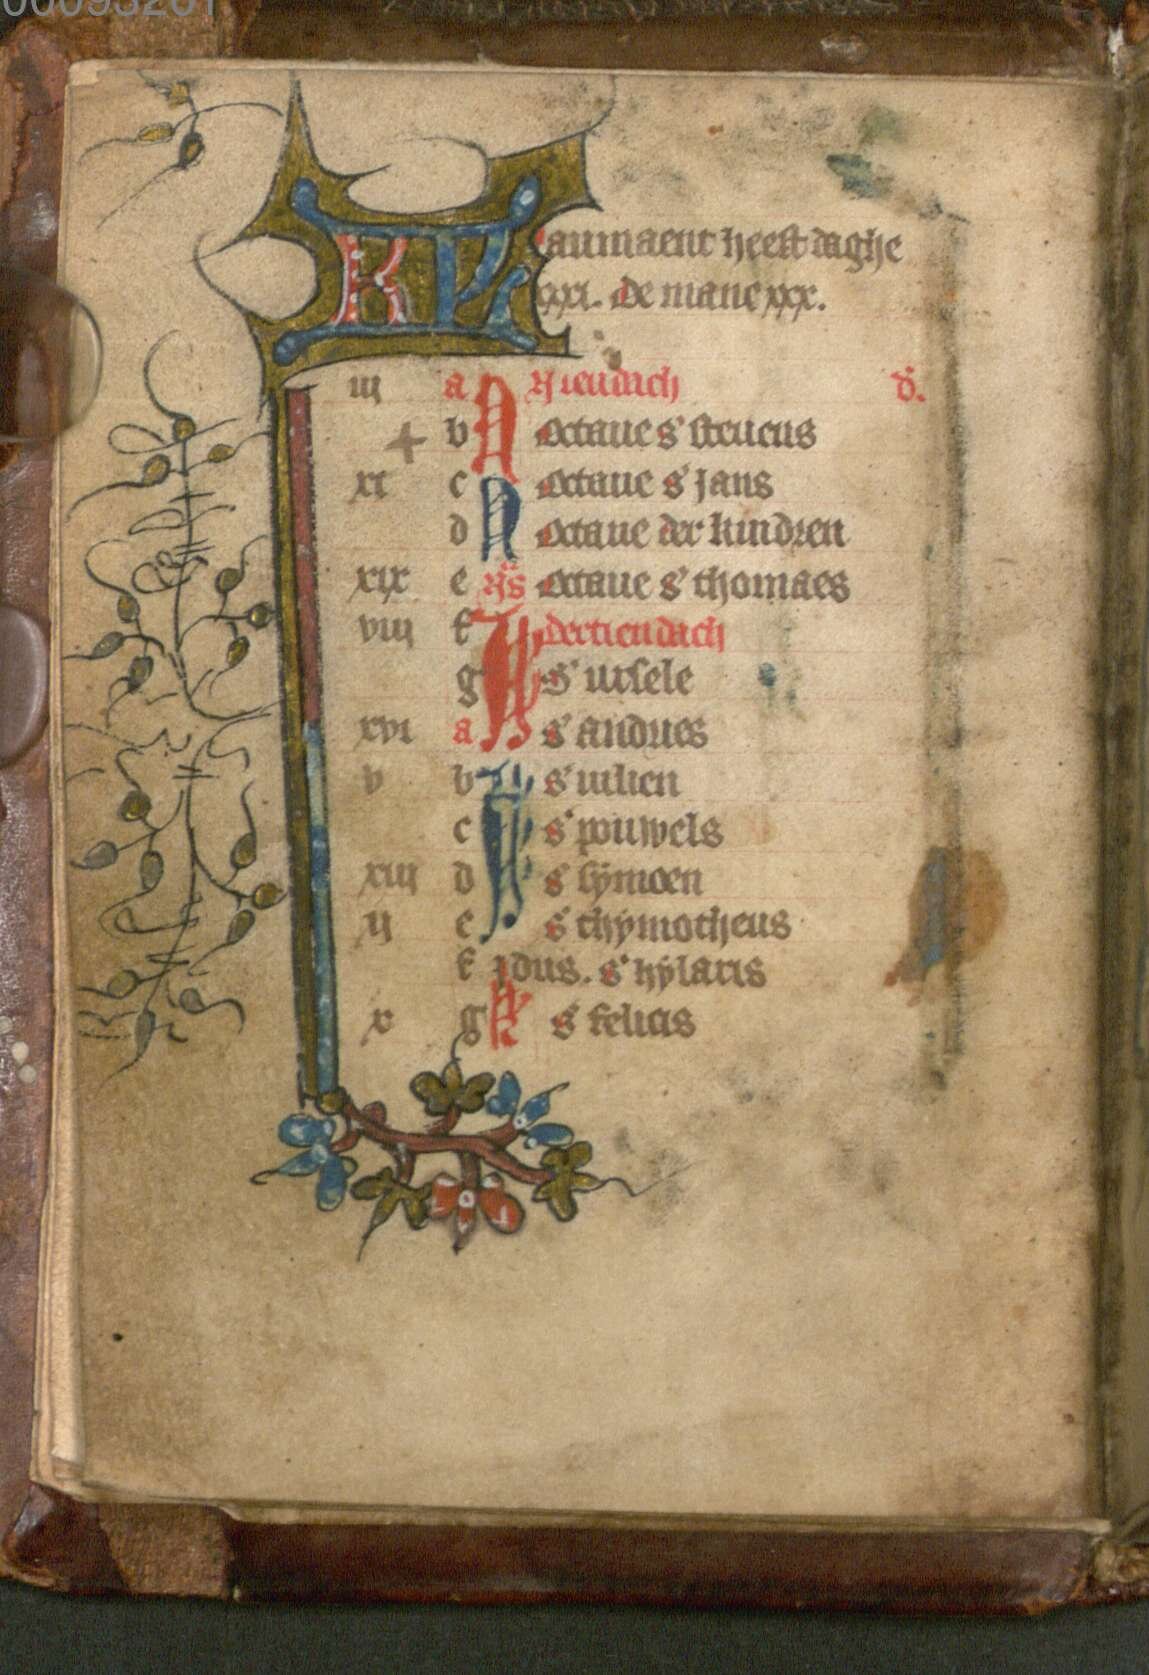 00093261
KL Laumaent heeft daghe
xxxi. De mane xxx.
iij a N Jieudach d'.
b octaue s' steuens
xi c N octaue s' jans
d octaue der kindren
xix e N's octaue s' thomaes
viij f dertiendach
g s' ursele
xvi a s' andries
v b s' iulien
c s' pouwels
xiij d s' symoen
ij e s' thymotheus
f ydus. s' hylaris
x g k s' felicis